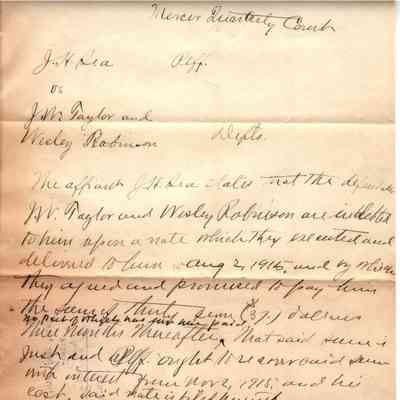 Mercer Quarterly Court
J. H. Rea Plff.
vs
J. W. Taylor and
Wesley Robinson Defts.
The affiant J. H. Rea states that the defendants
J. W. Taylor and Wesley Robinson are indebted
to him upon a note which they executed and
delivered to him Aug 2, 1915, and by which
they agreed and promised to pay him
the sum of thirty seven ($37) dollars
no part of which has been paid
three months thereafter. That said sum is
just and Plff. ought to recover said sum
with interest from Nov 2, 1915, and his
cost. Said note is filed herewith